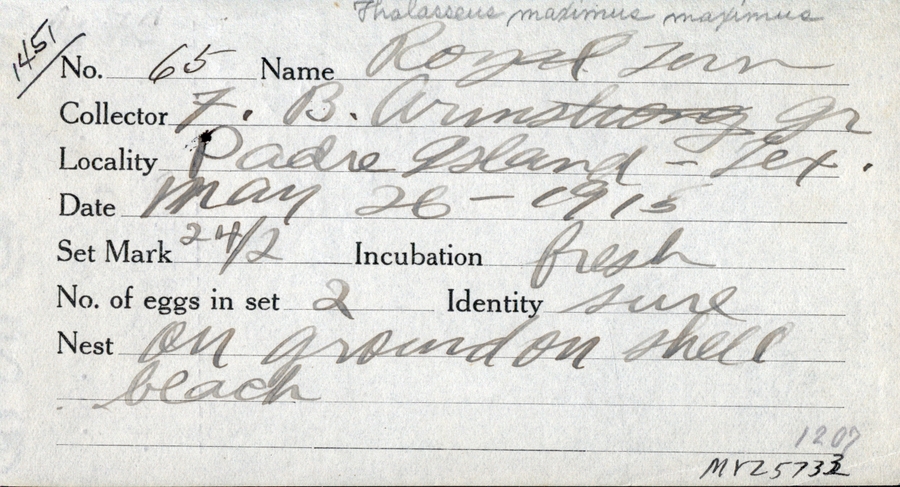 Thalasseus maximus maximus
1451
No. 65 Name Royal Tern
Collector F. B. Armstrong Jr
Locality Padre Island - Tex.
Date May 26 - 1915
Set Mark 24/2 Incubation fresh
No. of eggs in set 2 Identity sure
Nest on ground on shell
beach
1207
MVZ 5733